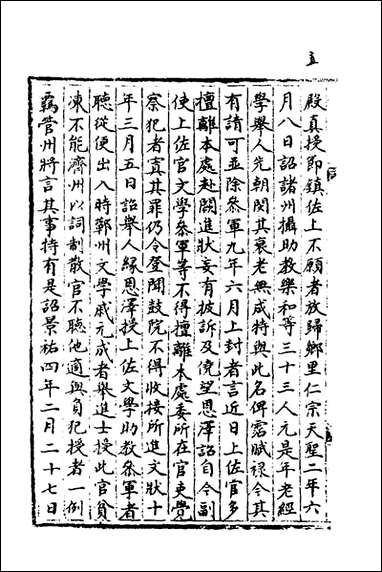 五
殿真授即鎮佐上不願者放歸鄉里仁宗天聖二年六
月八日詔諸州攝助教樂和等三十三人元是年老經
學舉人先朝閔其衰老無成特與此名俾霑賦祿令其
有請可並除叅軍九年六月上封者言近日上佐官多
擅離本處赴闕進狀妄有披訴及僥望恩澤詔自今副
使上佐官文學叅軍等不得擅離本處委所在官吏覺
察犯者寘其罪仍令登聞鼓院不得收接所進文狀十
年三月五日詔舉人緣恩澤授上佐文學助教叅軍者
聽從便出入時鄆州文學戚元成者舉進士授此官貧
凍不能濟州以詞制散官不聽他適與負犯授者一例
羈管州將言其事持有是詔景祐四年二月二十七日